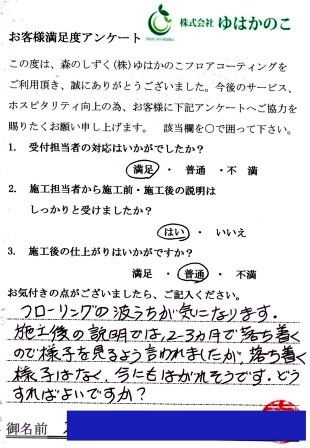 株式会社 ゆはかのこ
お客様満足度アンケート
この度は、森のしずく(株)ゆはかのこフロアコーティングを
ご利用頂き、誠にありがとうございました。今後のサービス、
ホスピタリティ向上の為、お客様に下記アンケートへご協力を
賜りたくお願い申し上げます。 該当欄を〇で囲って下さい。
1. 受付担当者の対応はいかがでしたか?
満足 ・ 普通 ・不 満
2. 施工担当者から施工前・施工後の説明は
しっかりと受けましたか?
はい ・ いいえ
3. 施工後の仕上がりはいかがですか?
満足 ・ 普通 ・不満
お気付きの点がございましたら、ご記入ください。
フローリングの波うちが気になります。
施工後の説明では、2-3ヵ月で落ち着く
ので様子を見るよう言われましたが、落ち着く
様子はなく、今にもはがれそうです。どう
すればよいですか?
御名前